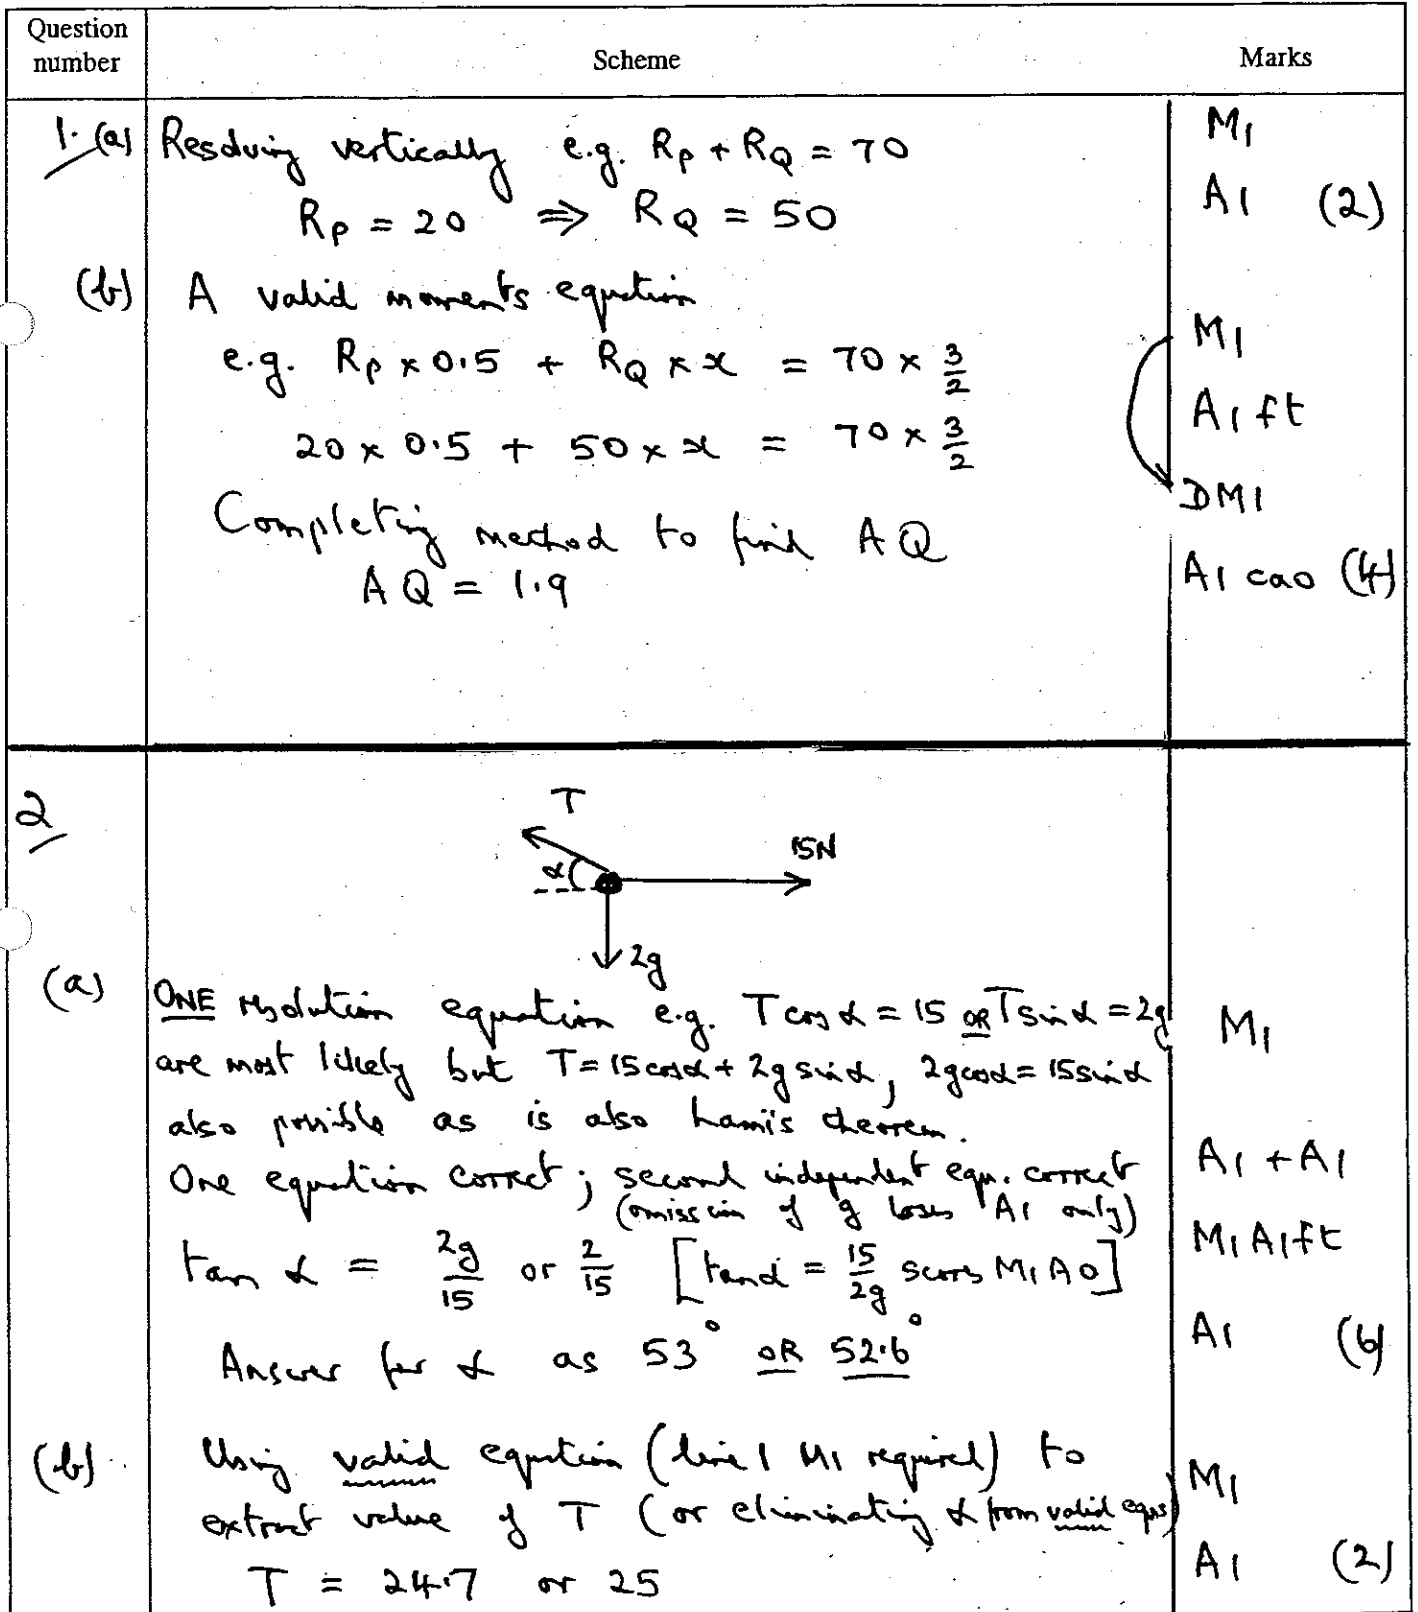 Question number
Scheme
Marks
1. (a) Resolving vertically e.g. R_P + R_Q = 70 M1
R_P = 20 ⇒ R_Q = 50 A1 (2)
(b) A valid moments equation
e.g. R_P × 0.5 + R_Q × x = 70 × 3/2 M1
20 × 0.5 + 50 × x = 70 × 3/2 A1 ft
Completing method to find AQ DM1
AQ = 1.9 A1 cao (4)
2
T
15N
α
2g
(a) ONE resolution equation e.g. T cos α = 15 OR T sin α = 2g M1
are most likely but T = 15 cos α + 2g sin α, 2g cos α = 15 sin α
also possible as is also Lami's theorem.
One equation correct; second independent equn. correct A1 + A1
(omission of g loses A1 only)
tan α = 2g/15 or 2/15 [tan α = 15/2g scores M1 A0] M1 A1 ft
Answer for α as 53° OR 52.6° A1 (6)
(b) Using valid equation (line 1 M1 required) to
extract value of T (or eliminating α from valid eqns) M1
T = 24.7 or 25 A1 (2)